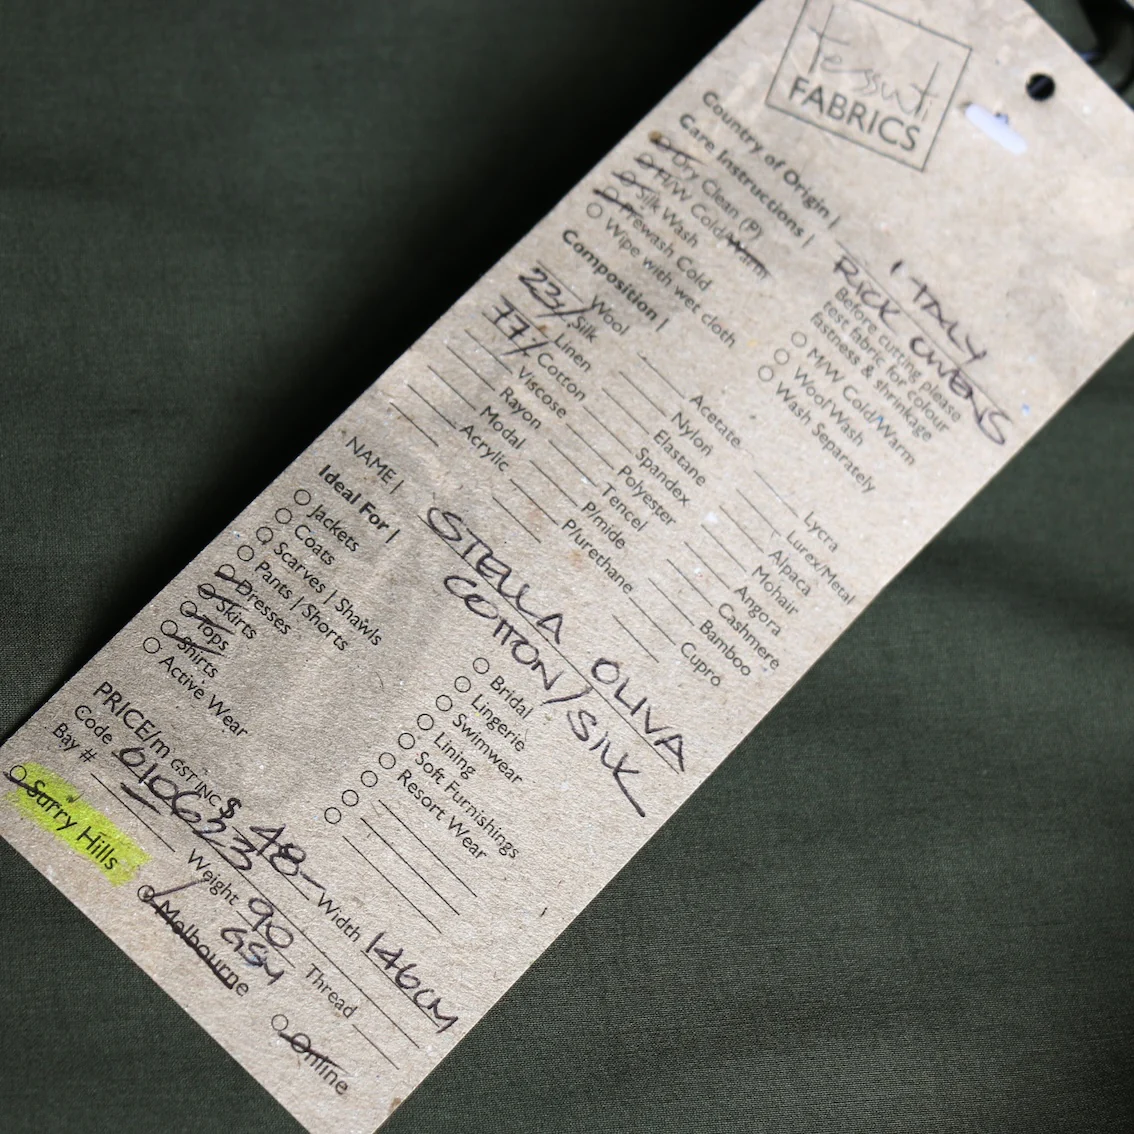 Tessuti
FABRICS
Country of Origin | ITALY
RICK OWENS
Care Instructions |
Dry Clean (P)
H/W Cold/Warm
Silk Wash
Prewash Cold
Wipe with wet cloth
Before cutting please
test fabric for colour
fastness & shrinkage
M/W Cold/Warm
Wool Wash
Wash Separately
Composition |
Wool
23% Silk
Linen
77% Cotton
Viscose
Rayon
Modal
Acrylic
Acetate
Nylon
Elastane
Spandex
Polyester
Tencel
P/mide
P/urethane
Lycra
Lurex/Metal
Alpaca
Mohair
Angora
Cashmere
Bamboo
Cupro
NAME | STELLA OLIVA
COTTON/SILK
Ideal For |
Jackets
Coats
Scarves | Shawls
Pants | Shorts
Dresses
Skirts
Tops
Shirts
Active Wear
Bridal
Lingerie
Swimwear
Lining
Soft Furnishings
Resort Wear
PRICE/m GST INC $ 48- Width 146CM
Code 6106223 Weight 90 GSM Thread
Bay #
Surry Hills
Melbourne
Online